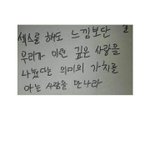 섹스를 해도 느낌보단 2
우리가 이런 깊은 사랑을
나눴다는 의미의 가치를
아는 사람을 만나라